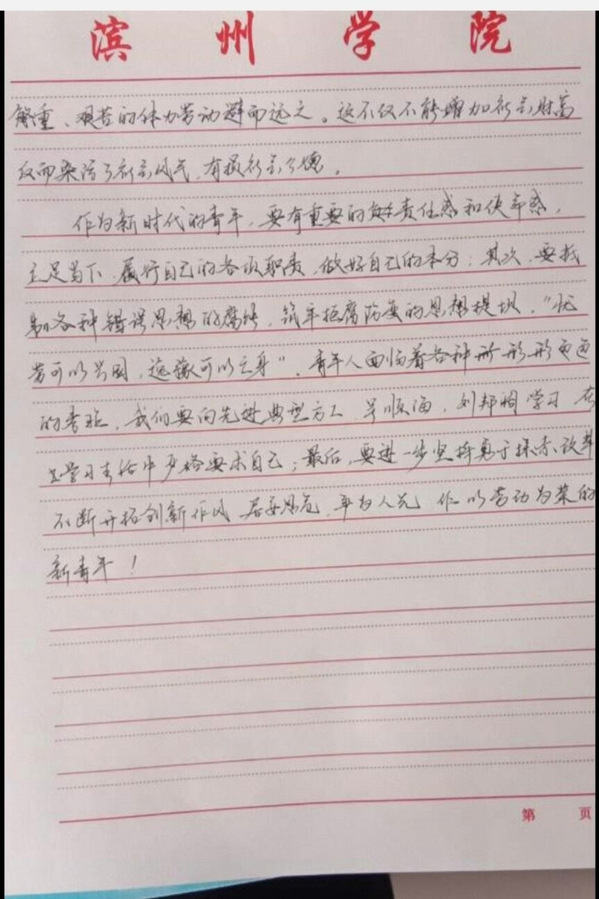 滨州学院
繁重、艰苦的体力劳动避而远之。这不仅不能增加社会财富
反而染污了社会风气,有损社会公德。
作为新时代的青年,要有重要的责任感和使命感,
立足当下,履行自己的各项职责,做好自己的本分;其次,要抵
制各种错误思想的腐蚀,筑牢拒腐防变的思想堤坝,“忧
劳可以兴国,逸豫可以亡身”,青年人面临着各种形形色色
的考验,我们要向先进典型 学习 在
学习生活中严格要求自己;最后,要进一步坚持勇于探索改革
不断开拓创新作风 居安思危,率为人先 作以劳动为荣的
新青年!
第 页